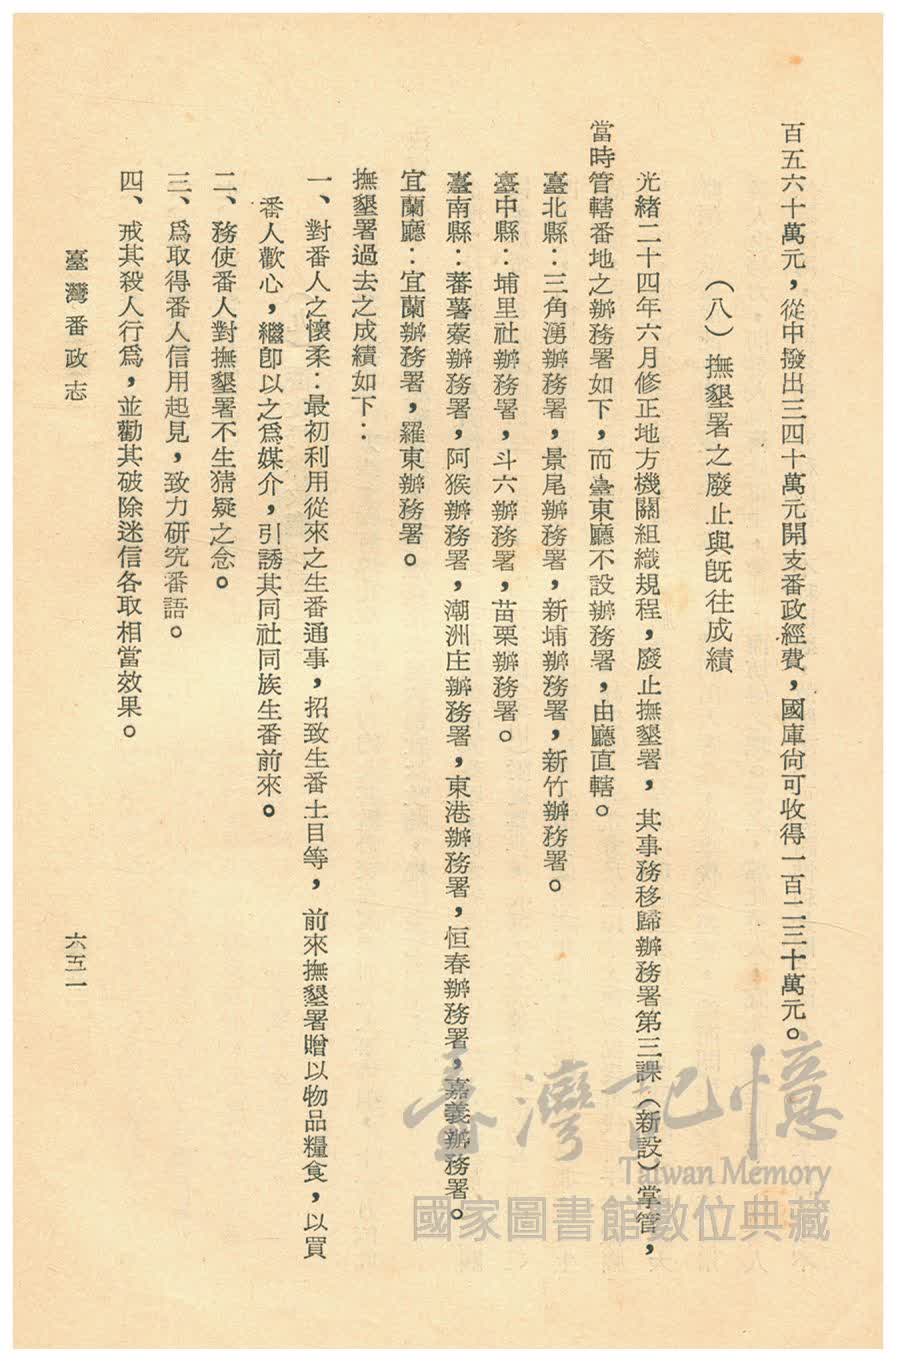 百五六十萬元，從中撥出三四十萬元開支番政經費，國庫尙可收得一百二三十萬元。
（八）撫墾署之廢止與旣往成績
光緒二十四年六月修正地方機關組織規程，廢止撫墾署，其事務移歸辦務署第三課（新設）掌管，
當時管轄番地之辦務署如下，而臺東廳不設辦務署，由廳直轄。
臺北縣：三角湧辦務署，景尾辦務署，新埔辦務署，新竹辦務署。
臺中縣：埔里社辦務署，斗六辦務署，苗栗辦務署。
臺南縣：蕃薯藔辦務署，阿猴辦務署，潮洲庄辦務署，東港辦務署，恒春辦務署，嘉義辦務署。
宜蘭廳：宜蘭辦務署，羅東辦務署。
撫墾署過去之成績如下：
一、對番人之懷柔：最初利用從來之生番通事，招致生番土目等，前來撫墾署贈以物品糧食，以買
番人歡心，繼卽以之爲媒介，引誘其同社同族生番前來。
二、務使番人對撫墾署不生猜疑之念。
三、爲取得番人信用起見，致力研究番語。
四、戒其殺人行爲，並勸其破除迷信各取相當效果。
臺灣番政志
六五一
臺灣記憶
Taiwan Memory
國家圖書館數位典藏